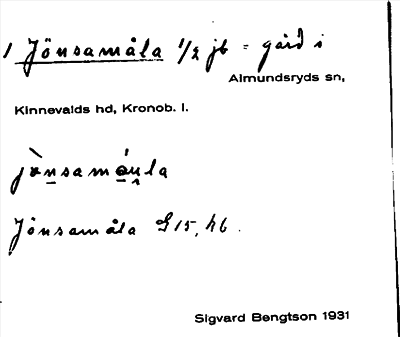 1 Jönsamåla 1/2 jb = gård i
Almundsryds sn,
Kinnevalds hd, Kronob. l.
jònsamóu̯la
Jönsamåla G15, h6.
Sigvard Bengtson 1931